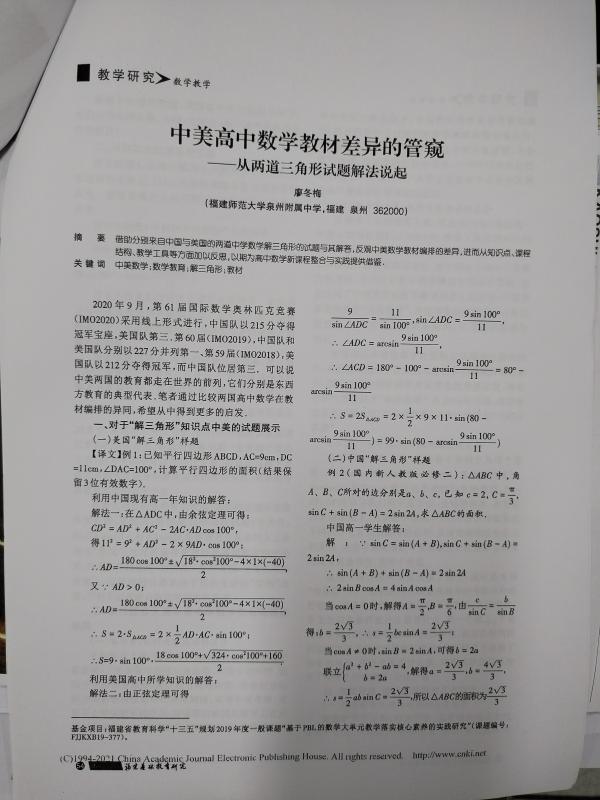 教学研究 数学教学
中美高中数学教材差异的管窥
——从两道三角形试题解法说起
廖冬梅
(福建师范大学泉州附属中学,福建 泉州 362000)
摘 要 借助分别来自中国与美国的两道中学数学解三角形的试题与其解答,反观中美数学教材编排的差异,进而从知识点、课程
结构、教学工具等方面加以反思,以期为高中数学新课程整合与实践提供借鉴.
关键词 中美数学;数学教育;解三角形;教材
2020 年 9 月,第 61 届国际数学奥林匹克竞赛
(IMO2020)采用线上形式进行,中国队以 215 分夺得
冠军宝座,美国队第三.第 60 届(IMO2019),中国队和
美国队分别以 227 分并列第一、第 59 届(IMO2018),美
国队以 212 分夺得冠军,而中国队位居第三. 可以说
中美两国的教育都走在世界的前列,它们分别是东西
方教育的典型代表.笔者通过比较两国高中数学在教
材编排的异同,希望从中得到更多的启发.
一、对于“解三角形”知识点中美的试题展示
(一)美国“解三角形”样题
【译文】例 1:已知平行四边形 ABCD,AC=9cm,DC
=11cm,∠DAC=100°,计算平行四边形的面积(结果保
留 3 位有效数字).
利用中国现有高一年知识的解答:
解法一:在△ADC 中,由余弦定理可得:
CD² = AD² + AC² − 2AC·AD cos 100°,
得 11² = 9² + AD² − 2 × 9AD · cos 100°;
∴ AD= (180 cos 100° ± √(18²· cos²100° − 4×1×(−40)))/2,
又 ∵ AD > 0;
∴ AD= (180 cos 100° ± √(18²· cos²100° − 4×1×(−40)))/2,
∴ S = 2·S△ADC = 2 × 1/2 AD·AC· sin 100°;
∴ S=9· sin 100°· (18 cos 100°+√(324· cos²100°+160))/2.
利用美国高中所学知识的解答:
解法二:由正弦定理可得
9/sin ∠ADC = 11/sin 100°, sin ∠ADC = 9 sin 100°/11,
∴ ∠ADC = arcsin 9 sin 100°/11,
∴ ∠ACD = 180° − 100° − arcsin 9 sin 100°/11 = 80° −
arcsin 9 sin 100°/11
∴ S = 2S△ACD = 2 × 1/2 × 9 × 11· sin (80 −
arcsin 9 sin 100°/11) = 99· sin (80 − arcsin 9 sin 100°/11)
(二)中国“解三角形”样题
例 2(国内新人教版必修二):△ABC 中,角
A、B、C 所对的边分别是 a、b、c, 已知 c = 2, C = π/3,
sin C + sin (B − A) = 2 sin 2A, 求△ABC 的面积.
中国高一学生解答:
解:∵ sin C = sin (A + B), sin C + sin (B − A) =
2 sin 2A,
∴ sin (A + B) + sin (B − A) = 2 sin 2A
∴ 2 sin B cos A = 4 sin A cos A
当 cos A = 0 时,解得 A = π/2, B = π/6, 由 c/sin C = b/sin B
得:b = 2√3/3, ∴ s = 1/2 bc sin A = 2√3/3;
当 cos A ≠ 0 时, sin B = 2 sin A, 可得 b = 2a
联立{a² + b² − ab = 4, b = 2a, 解得 a = 2√3/3, b = 4√3/3,
∴ s = 1/2 ab sin C = 2√3/3, 所以△ABC 的面积为 2√3/3
基金项目:福建省教育科学“十三五”规划 2019 年度一般课题“基于 PBL 的数学大单元教学落实核心素养的实践研究”(课题编号:
FJJKXB19-377).
(C)1994-2021 China Academic Journal Electronic Publishing House. All rights reserved. http://www.cnki.net
54 福建基础教育研究